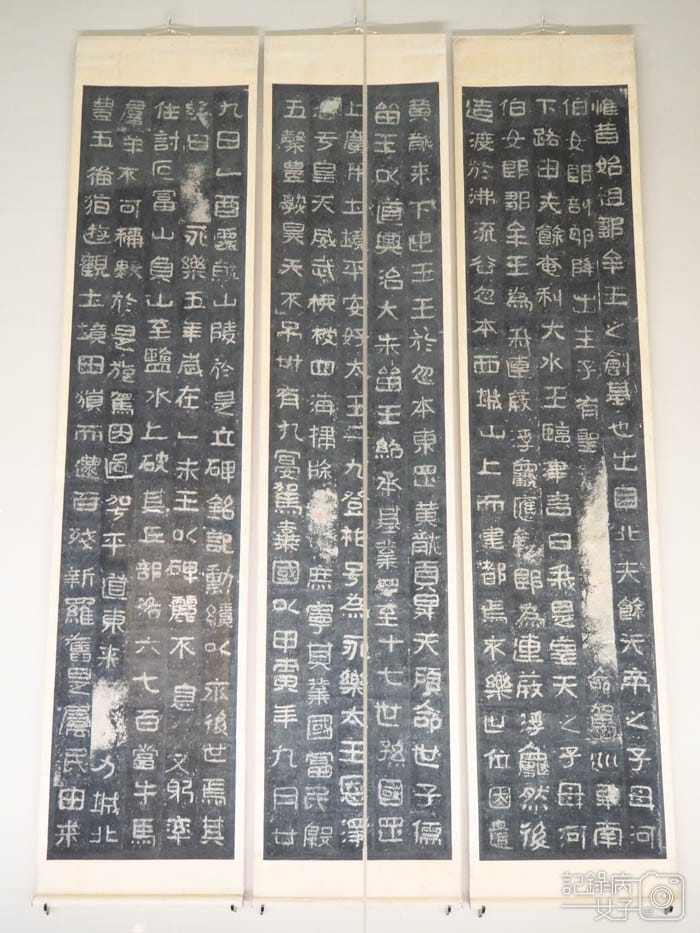 惟昔始祖鄒牟王之創基也出自北夫餘天帝之子母河
伯女郎剖卵降出生子有聖命駕巡車南
下路由夫餘奄利大水王臨津言曰我是皇天之子母河
伯女郎鄒牟王為我連葭浮龜應聲即為連葭浮龜然後
造渡於沸流谷忽本西城山上而建都焉永樂世位因遣
黃龍來下迎王王於忽本東罡黃龍負昇天顧命世子儒
留王以道興治大朱留王紹承基業遝至十七世孫國罡
上廣開土境平安好太王二九登祚号為永樂太王恩澤
洽于皇天威武橫被四海掃除庶寧其業國富民殷
五穀豊熟昊天不弔卅有九宴駕棄國以甲寅年九月廿
九日乙酉遷就山陵於是立碑銘記勳績以永後世焉其
詞曰永樂五年歲在乙未王以碑麗不息又躬率
住討叵富山負山至鹽水上破其丘部洛六七百當牛馬
羣羊不可稱數於是旋駕因過平道東來力城北
豊五備猶遊觀土境田獵而還百殘新羅舊是屬民由來
記錄病女子